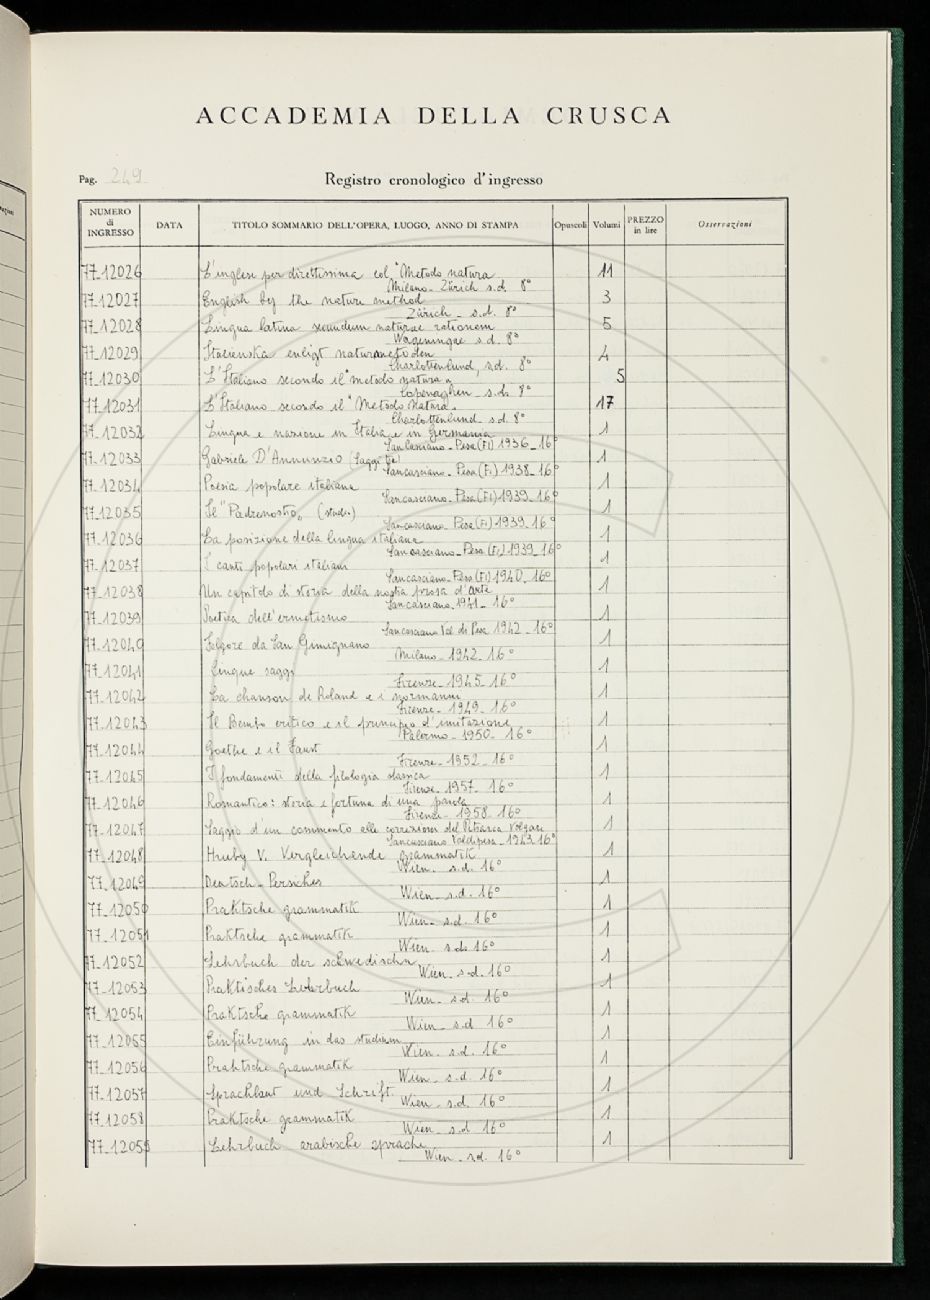 ACCADEMIA DELLA CRUSCA
Pag. 249
Registro cronologico d'ingresso
NUMERO di INGRESSO DATA TITOLO SOMMARIO DELL'OPERA, LUOGO, ANNO DI STAMPA Opuscoli Volumi PREZZO in lire Osservazioni
77-12026 L'inglese per direttissima col "Metodo natura 11
Milano - Zürich s.d. 8°
77-12027 English by the nature method 3
Zürich - s.d. 8°
77-12028 Lingua latina secundum naturae rationem 5
Wageningue s.d. 8°
77-12029 Italienska enligt naturmetoden 4
Charlottenlund, s.d. 8°
77-12030 L'Italiano secondo il "metodo natura" 5
Copenaghen s.d. 8°
77-12031 L'Italiano secondo il "Metodo Natura" 17
Charlottenlund s.d. 8°
77-12032 Lingua e nazione in Italia e in Germania 1
Sancasciano - Pesa (FI) 1936 - 16°
77-12033 Gabriele D'Annunzio (Saggi 1
Sancasciano - Pesa (FI) 1938 - 16°
77-12034 Poesia popolare italiana 1
Sancasciano - Pesa (FI) 1939 - 16°
77-12035 Il "Padrenostro" (studi) 1
Sancasciano Pesa (FI) 1939 - 16°
77-12036 La posizione della lingua italiana 1
Sancasciano - Pesa (FI) 1939 - 16°
77-12037 I canti popolari italiani 1
Sancasciano - Pesa (FI) 1940 - 16°
77-12038 Un capitolo di storia della nostra prosa d'arte 1
Sancasciano 1941 - 16°
77-12039 Poetica dell'ermetismo 1
Sancasciano Val di Pesa 1942 - 16°
77-12040 Folgore da San Gimignano 1
Milano - 1942 - 16°
77-12041 Lingue saggi 1
Firenze - 1945 - 16°
77-12042 La chanson de Roland e i normanni 1
Firenze - 1949 - 16°
77-12043 Il Bembo critico e il principio d'imitazione 1
Palermo - 1950 - 16°
77-12044 Goethe e il Faust 1
Firenze - 1952 - 16°
77-12045 I fondamenti della filologia classica 1
Firenze - 1957 - 16°
77-12046 Romantico: storia e fortuna di una parola 1
Firenze - 1958 - 16°
77-12047 Saggio d'un commento alle correzioni del Petrarca Volgare 1
Sancasciano Valdipesa - 1943 16°
77-12048 Hruby V. Vergleichende grammatik 1
Wien - s.d. 16°
77-12049 Deutsch - Persiches 1
Wien - s.d. 16°
77-12050 Praktsche grammatik 1
Wien - s.d. 16°
77-12051 Praktsche grammatik 1
Wien - s.d. 16°
77-12052 Lehrbuch der schwedischen 1
Wien - s.d. 16°
77-12053 Praktisches Lehrbuch 1
Wien - s.d. 16°
77-12054 Praktsche grammatik 1
Wien - s.d 16°
77-12055 Einführung in das studium 1
Wien - s.d. 16°
77-12056 Praktsche grammatik 1
Wien - s.d. 16°
77-12057 Sprachlaut und Schrift 1
Wien - s.d. 16°
77-12058 Praktsche grammatik 1
Wien - s.d 16°
77-12059 Lehrbuch arabische sprache 1
Wien - s.d. 16°